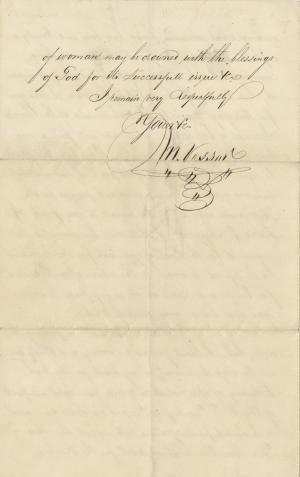 of woman may be owned with the blessings
of God for its successfull issue &c
I remain very Respectfully
Yours &c
M. Vassar